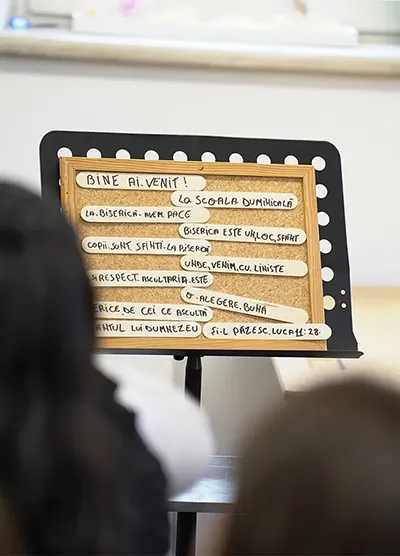 BINE AI.VENIT!
LA ȘCOALA DUMINICALĂ
LA.BISERICĂ.AVEM PACE
BISERICA ESTE UN.LOC.SFÂNT
COPII.SUNT.SFINTI.LA BISERICĂ
UNDE.VENIM.CU.LINISTE
RESPECT.ASCULTAREA.ESTE
O.ALEGERE.BUNĂ
ERICE.DE CEI CE ASCULTĂ
ÂNTUL LUI DUMNEZEU
SI-L PĂZESC.LUCA 11:28